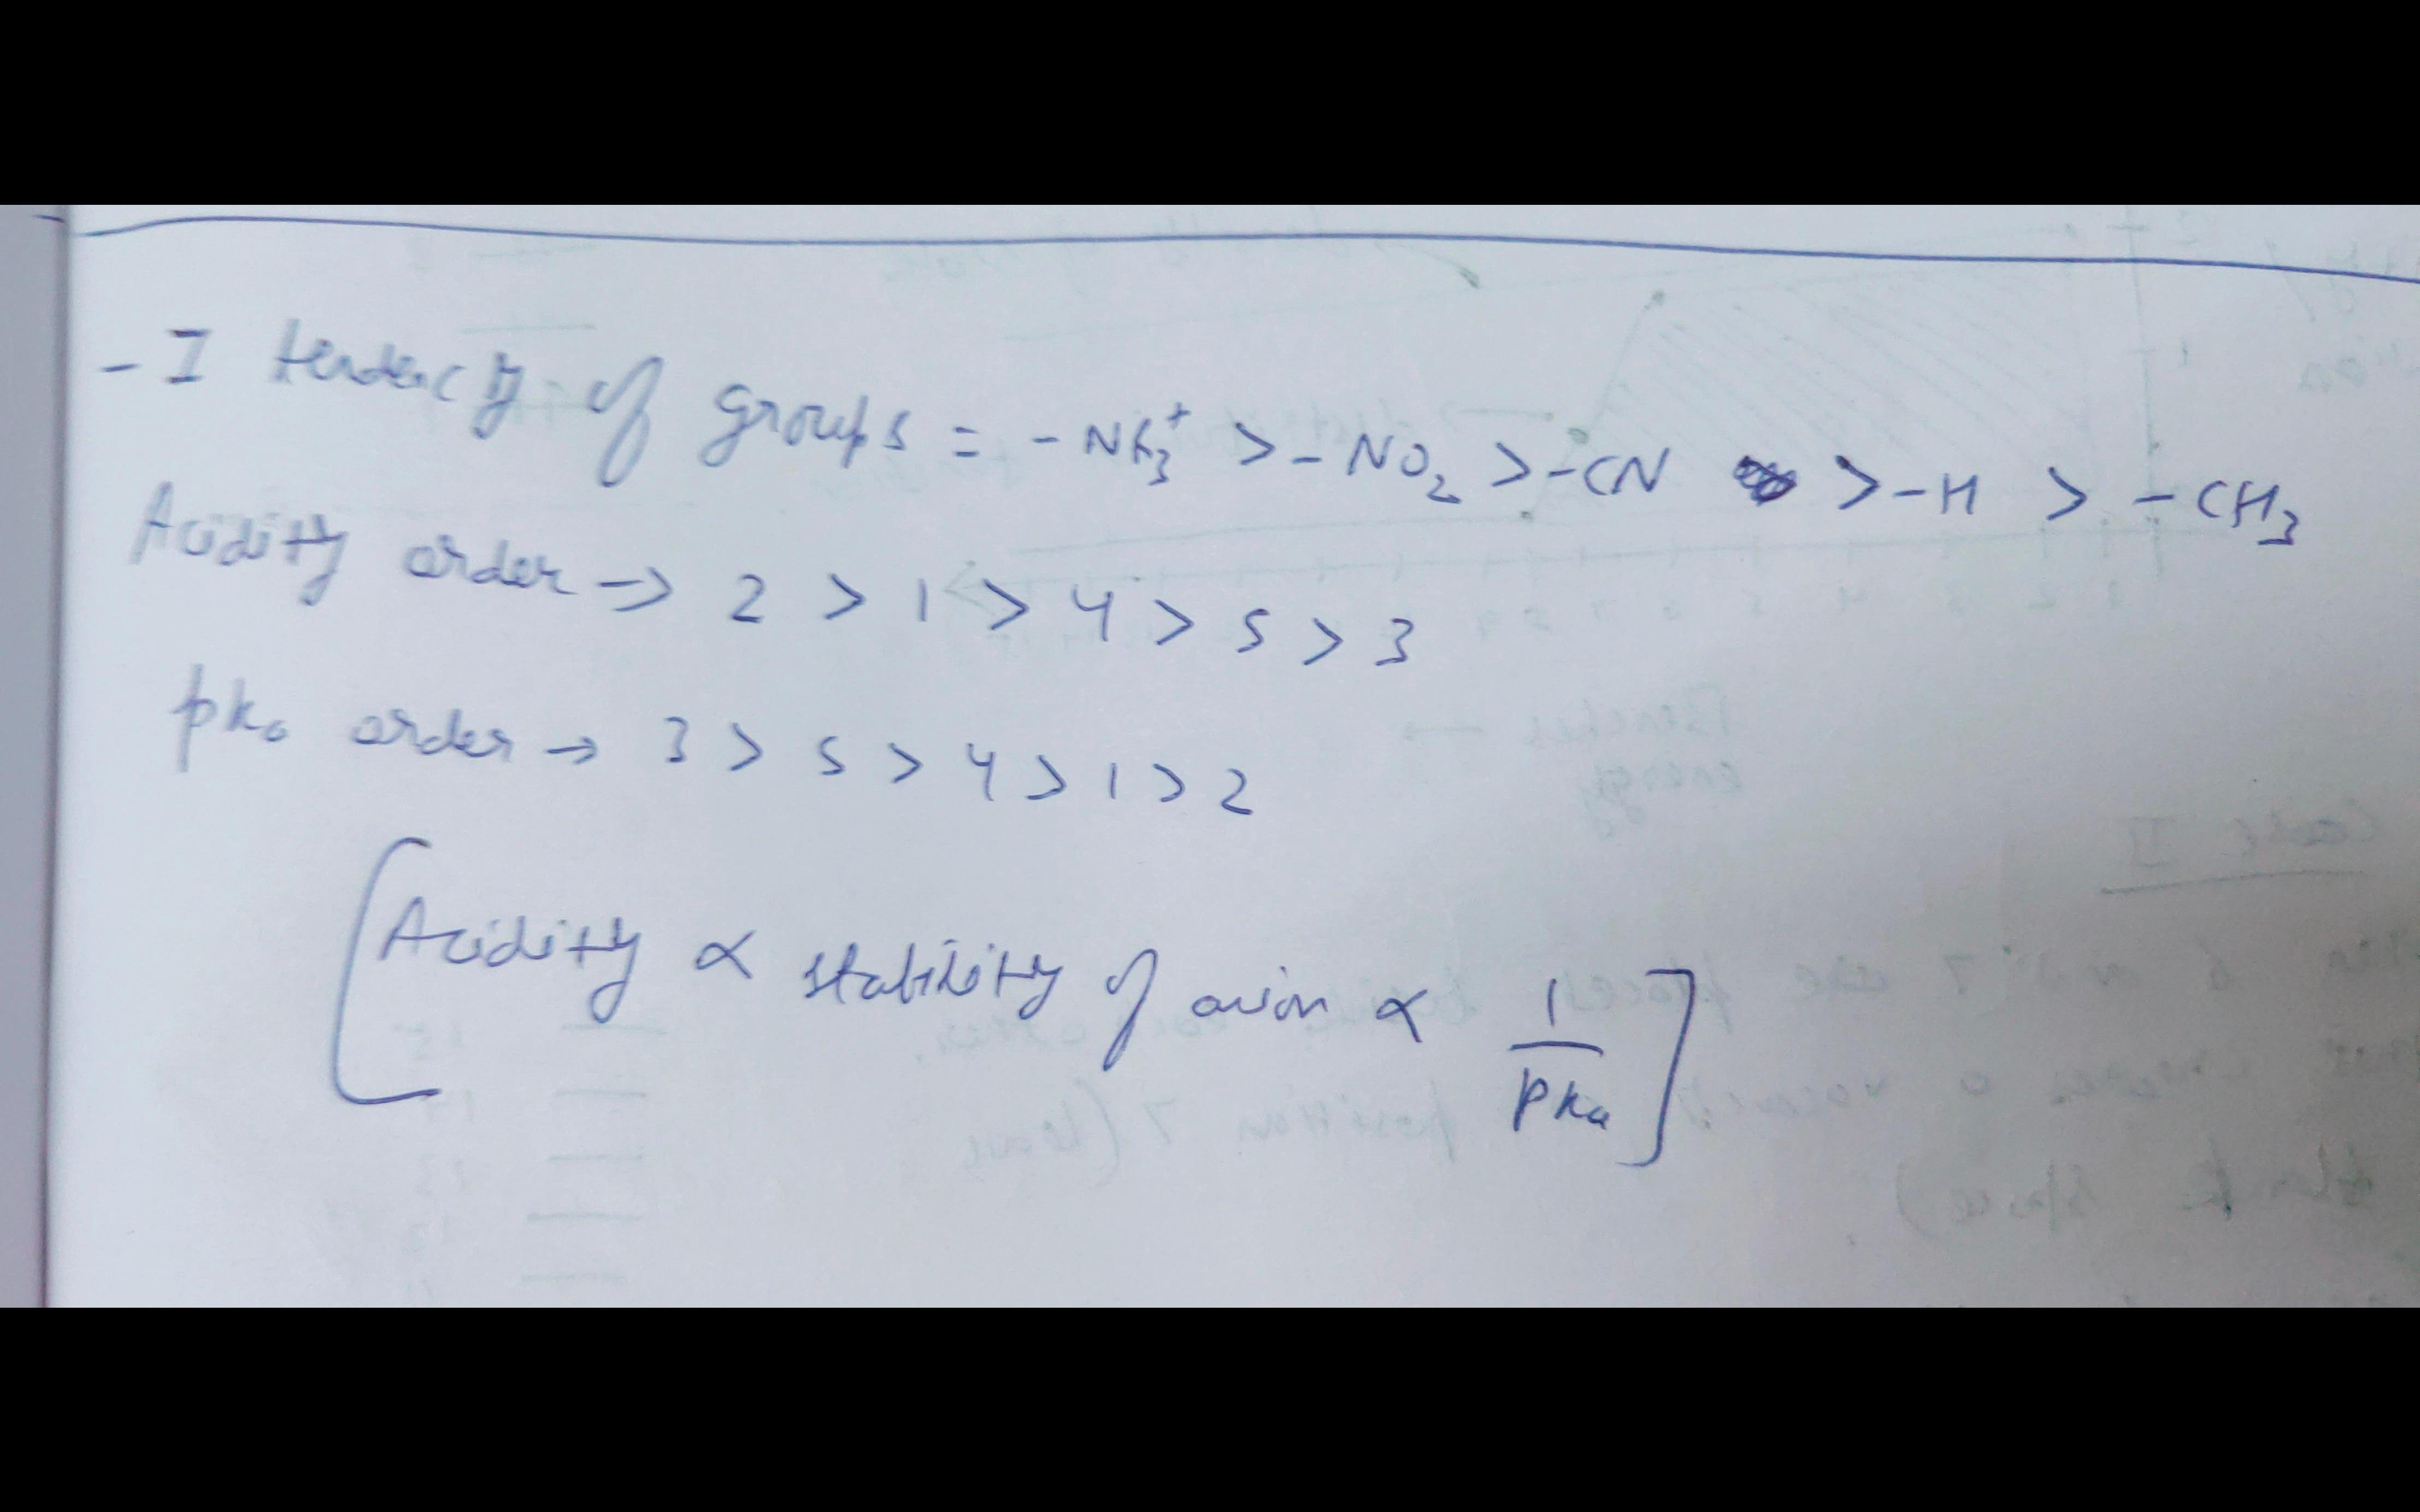 - I tendency of groups = - NH₃⁺ > - NO₂ > - CN > - H > - CH₃
Acidity order → 2 > 1 > 4 > 5 > 3
pka order → 3 > 5 > 4 > 1 > 2
[Acidity ∝ stability of anion ∝ 1/pka]